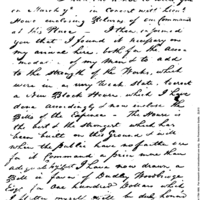 on "Sarchy" in Concert with Lieut
House enclosing Returns of our Command
at this Place. I then informed
you that I found it necessary on
my arrival here, both for the accom
modation of my Men & to add
to the strength of the Works, which
were in a very weak State, to erect
a new Block House which I have
done accordingly & now enclose the
Bills of the Expence. The House is
the best & the strongest which has
been built on this Ground & will
when the Public have no further use
for it Command a price more than
I have now drawn a
Bill in favor of Dudley Woodbridge
Esqr for One hundred Dollars which
I flatter myself will be duly honored